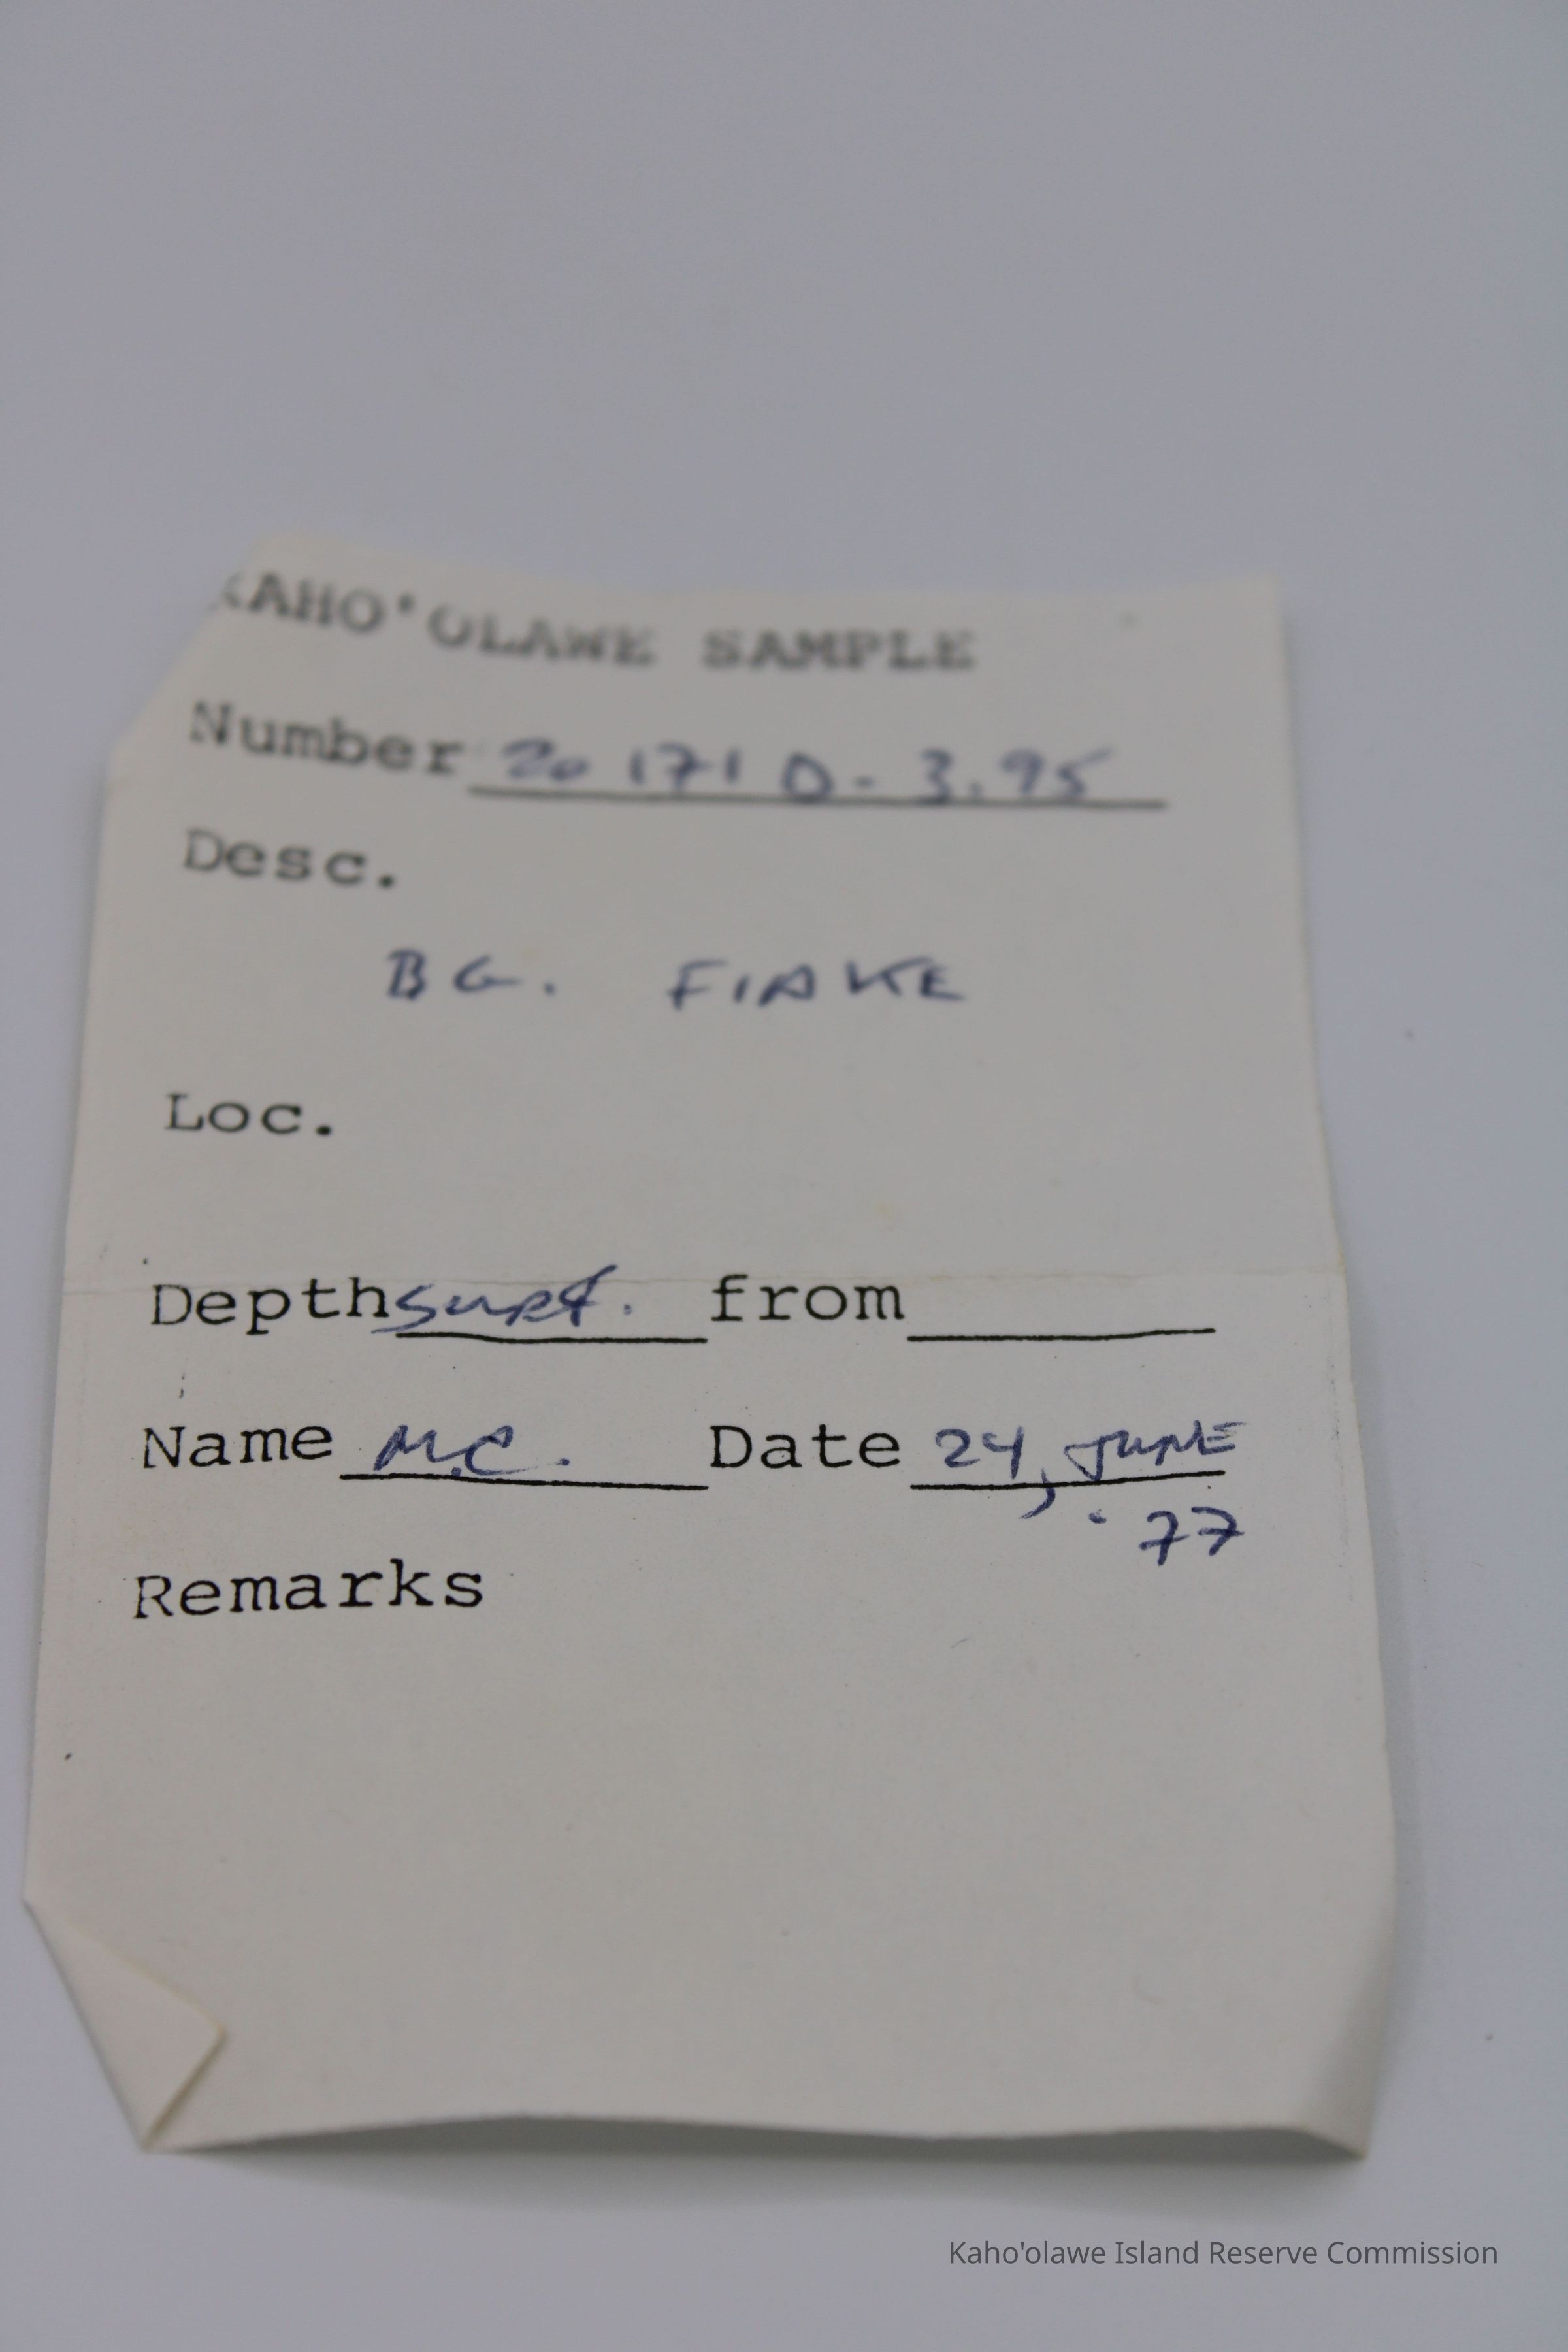 KAHO'OLAWE SAMPLE
Number 20 171 D - 3.95
Desc.
BG. FlAKE
Loc.
Depth surf. from
Name M.C. Date 24, JUNE
'77
Remarks
Kaho'olawe Island Reserve Commission